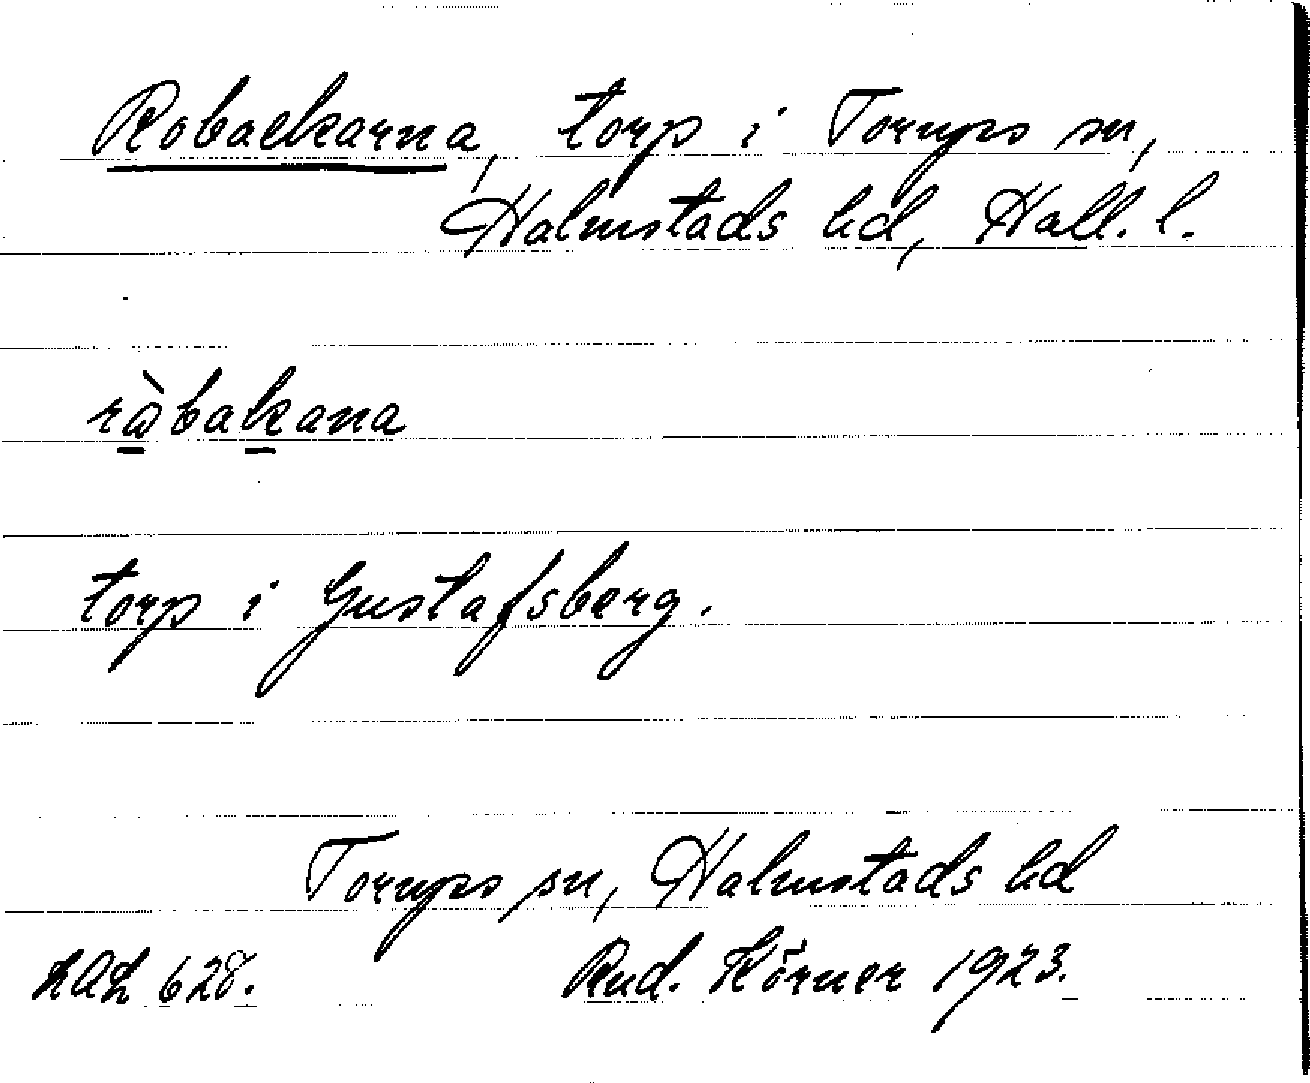 Robackarna, torp i Torups sn,
Halmstads hd, Hall. l.
rà̱baḵana
torp i Gustafsberg.
Torups sn, Halmstads hd
LAL 628. Rud. Körner 1923.